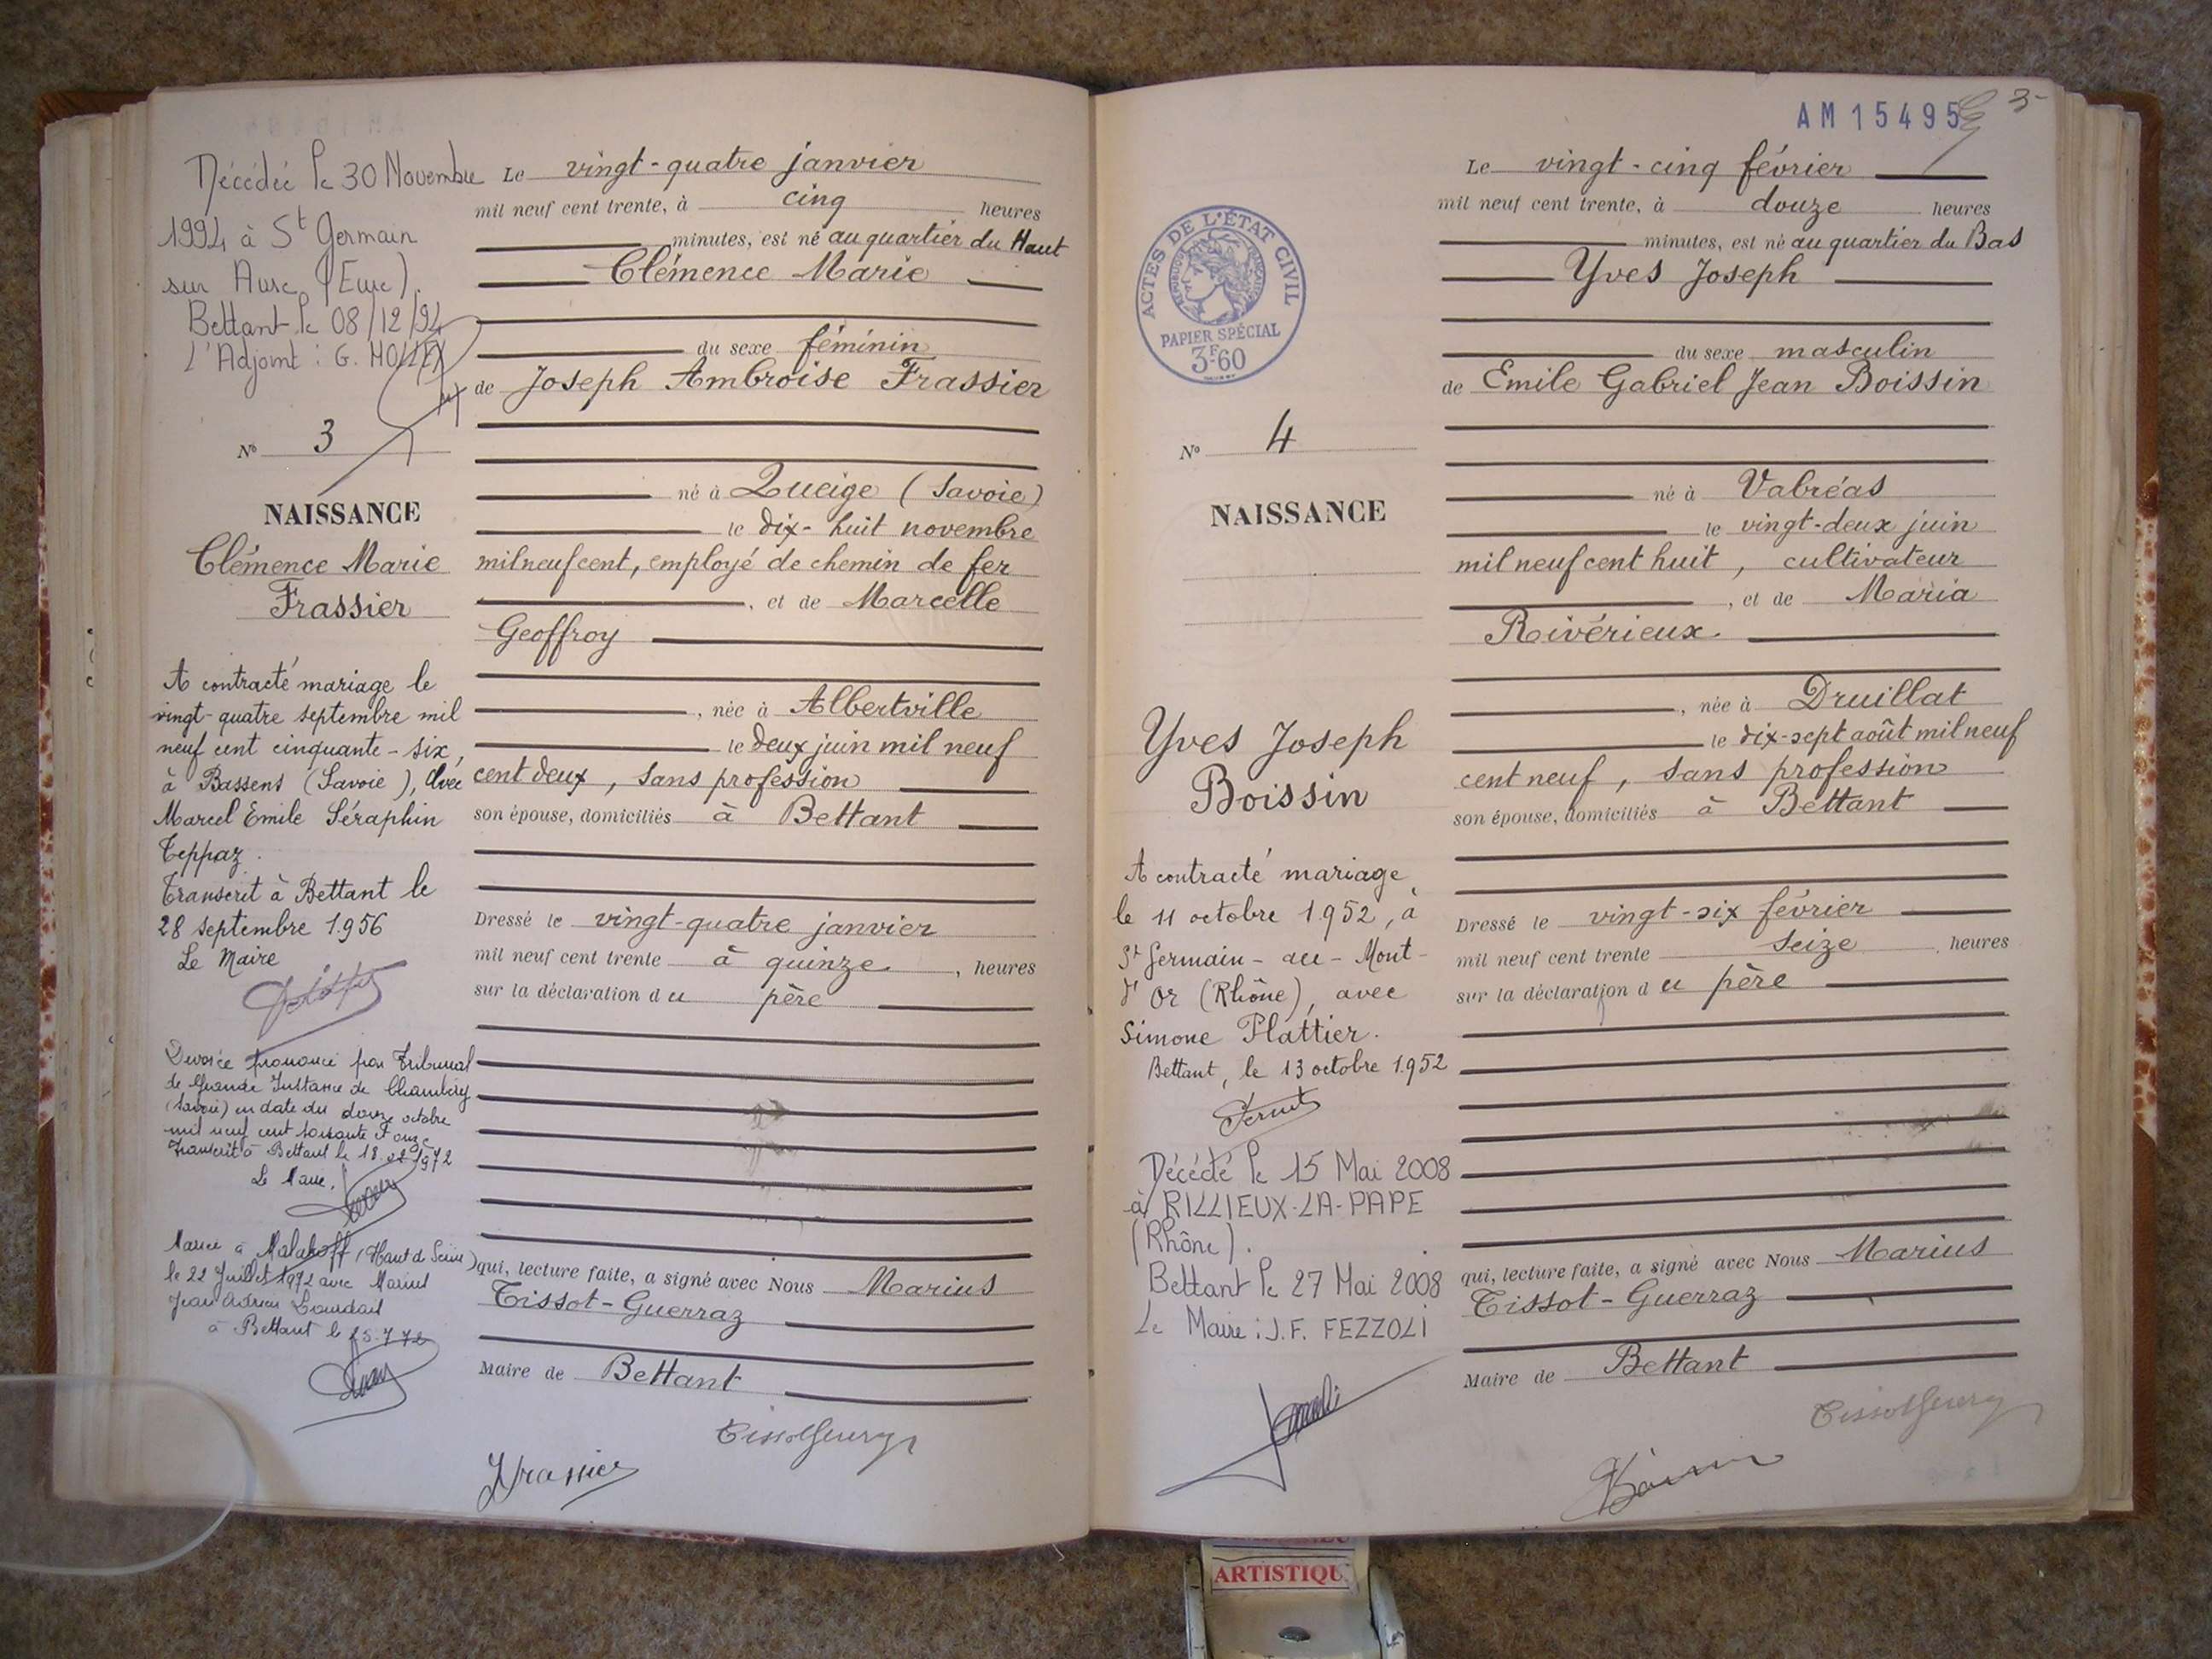 Décédée le 30 Novembre
1994 à St Germain
sur Avre (Eure).
Bettant le 08/12/94
L'Adjoint : G.
N° 3
NAISSANCE
Clémence Marie
Frassier
A contracté mariage le
vingt-quatre septembre mil
neuf cent cinquante-six,
à Bassens (Savoie), avec
Marcel Emile Séraphin
Teppaz.
Transcrit à Bettant le
28 septembre 1956
Le Maire
Divorce prononcé par Tribunal
de Grande Instance de Chambéry
(Savoie) en date du douze octobre
mil neuf cent soixante et onze
Transcrit à Bettant le 18.02.1972
Le Maire.
Mariée à Malakoff (Haut de Seine)
le 22 Juillet 1972 avec Marcel
Jean Adrien
à Bettant le 25.7.72
Le vingt-quatre janvier
mil neuf cent trente, à cinq heures
minutes, est né au quartier du Haut
Clémence Marie
du sexe féminin
de Joseph Ambroise Frassier
né à Queige (Savoie)
le dix-huit novembre
mil neuf cent, employé de chemin de fer
, et de Marcelle
Geoffroy
, née à Albertville
le deux juin mil neuf
cent deux, sans profession
son épouse, domiciliés à Bettant
Dressé le vingt-quatre janvier
mil neuf cent trente à quinze, heures
sur la déclaration du père
qui, lecture faite, a signé avec Nous Marius
Tissot-Guerraz
Maire de Bettant
TissotGuerraz
Frassier
AM15495
3
ACTES DE L'ÉTAT CIVIL
RÉPUBLIQUE FRANÇAISE
PAPIER SPÉCIAL
3F60
N° 4
NAISSANCE
Yves Joseph
Boissin
A contracté mariage
le 11 octobre 1952, à
St Germain-au-Mont-
d'Or (Rhône), avec
Simone Plattier.
Bettant, le 13 octobre 1952
Décédé le 15 Mai 2008
à RILLIEUX-LA-PAPE
(Rhône).
Bettant le 27 Mai 2008
Le Maire : J.F. FEZZOLI
Le vingt-cinq février
mil neuf cent trente, à douze heures
minutes, est né au quartier du Bas
Yves Joseph
du sexe masculin
de Emile Gabriel Jean Boissin
né à Valréas
le vingt-deux juin
mil neuf cent huit, cultivateur
, et de Maria
Rivérieux.
, née à Druillat
le dix-sept août mil neuf
cent neuf, sans profession
son épouse, domiciliés à Bettant
Dressé le vingt-six février
mil neuf cent trente seize heures
sur la déclaration du père
qui, lecture faite, a signé avec Nous Marius
Tissot-Guerraz
Maire de Bettant
TissotGuerraz
ARTISTIQU